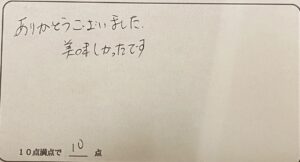 ありがとうございました.
美味しかったです
10点満点で 10 点